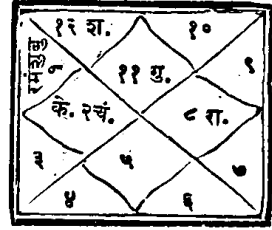 १२ श.
१०
रमंशुबु
१
११ गु.
९
के. २चं.
८ रा.
३
५
७
४
६